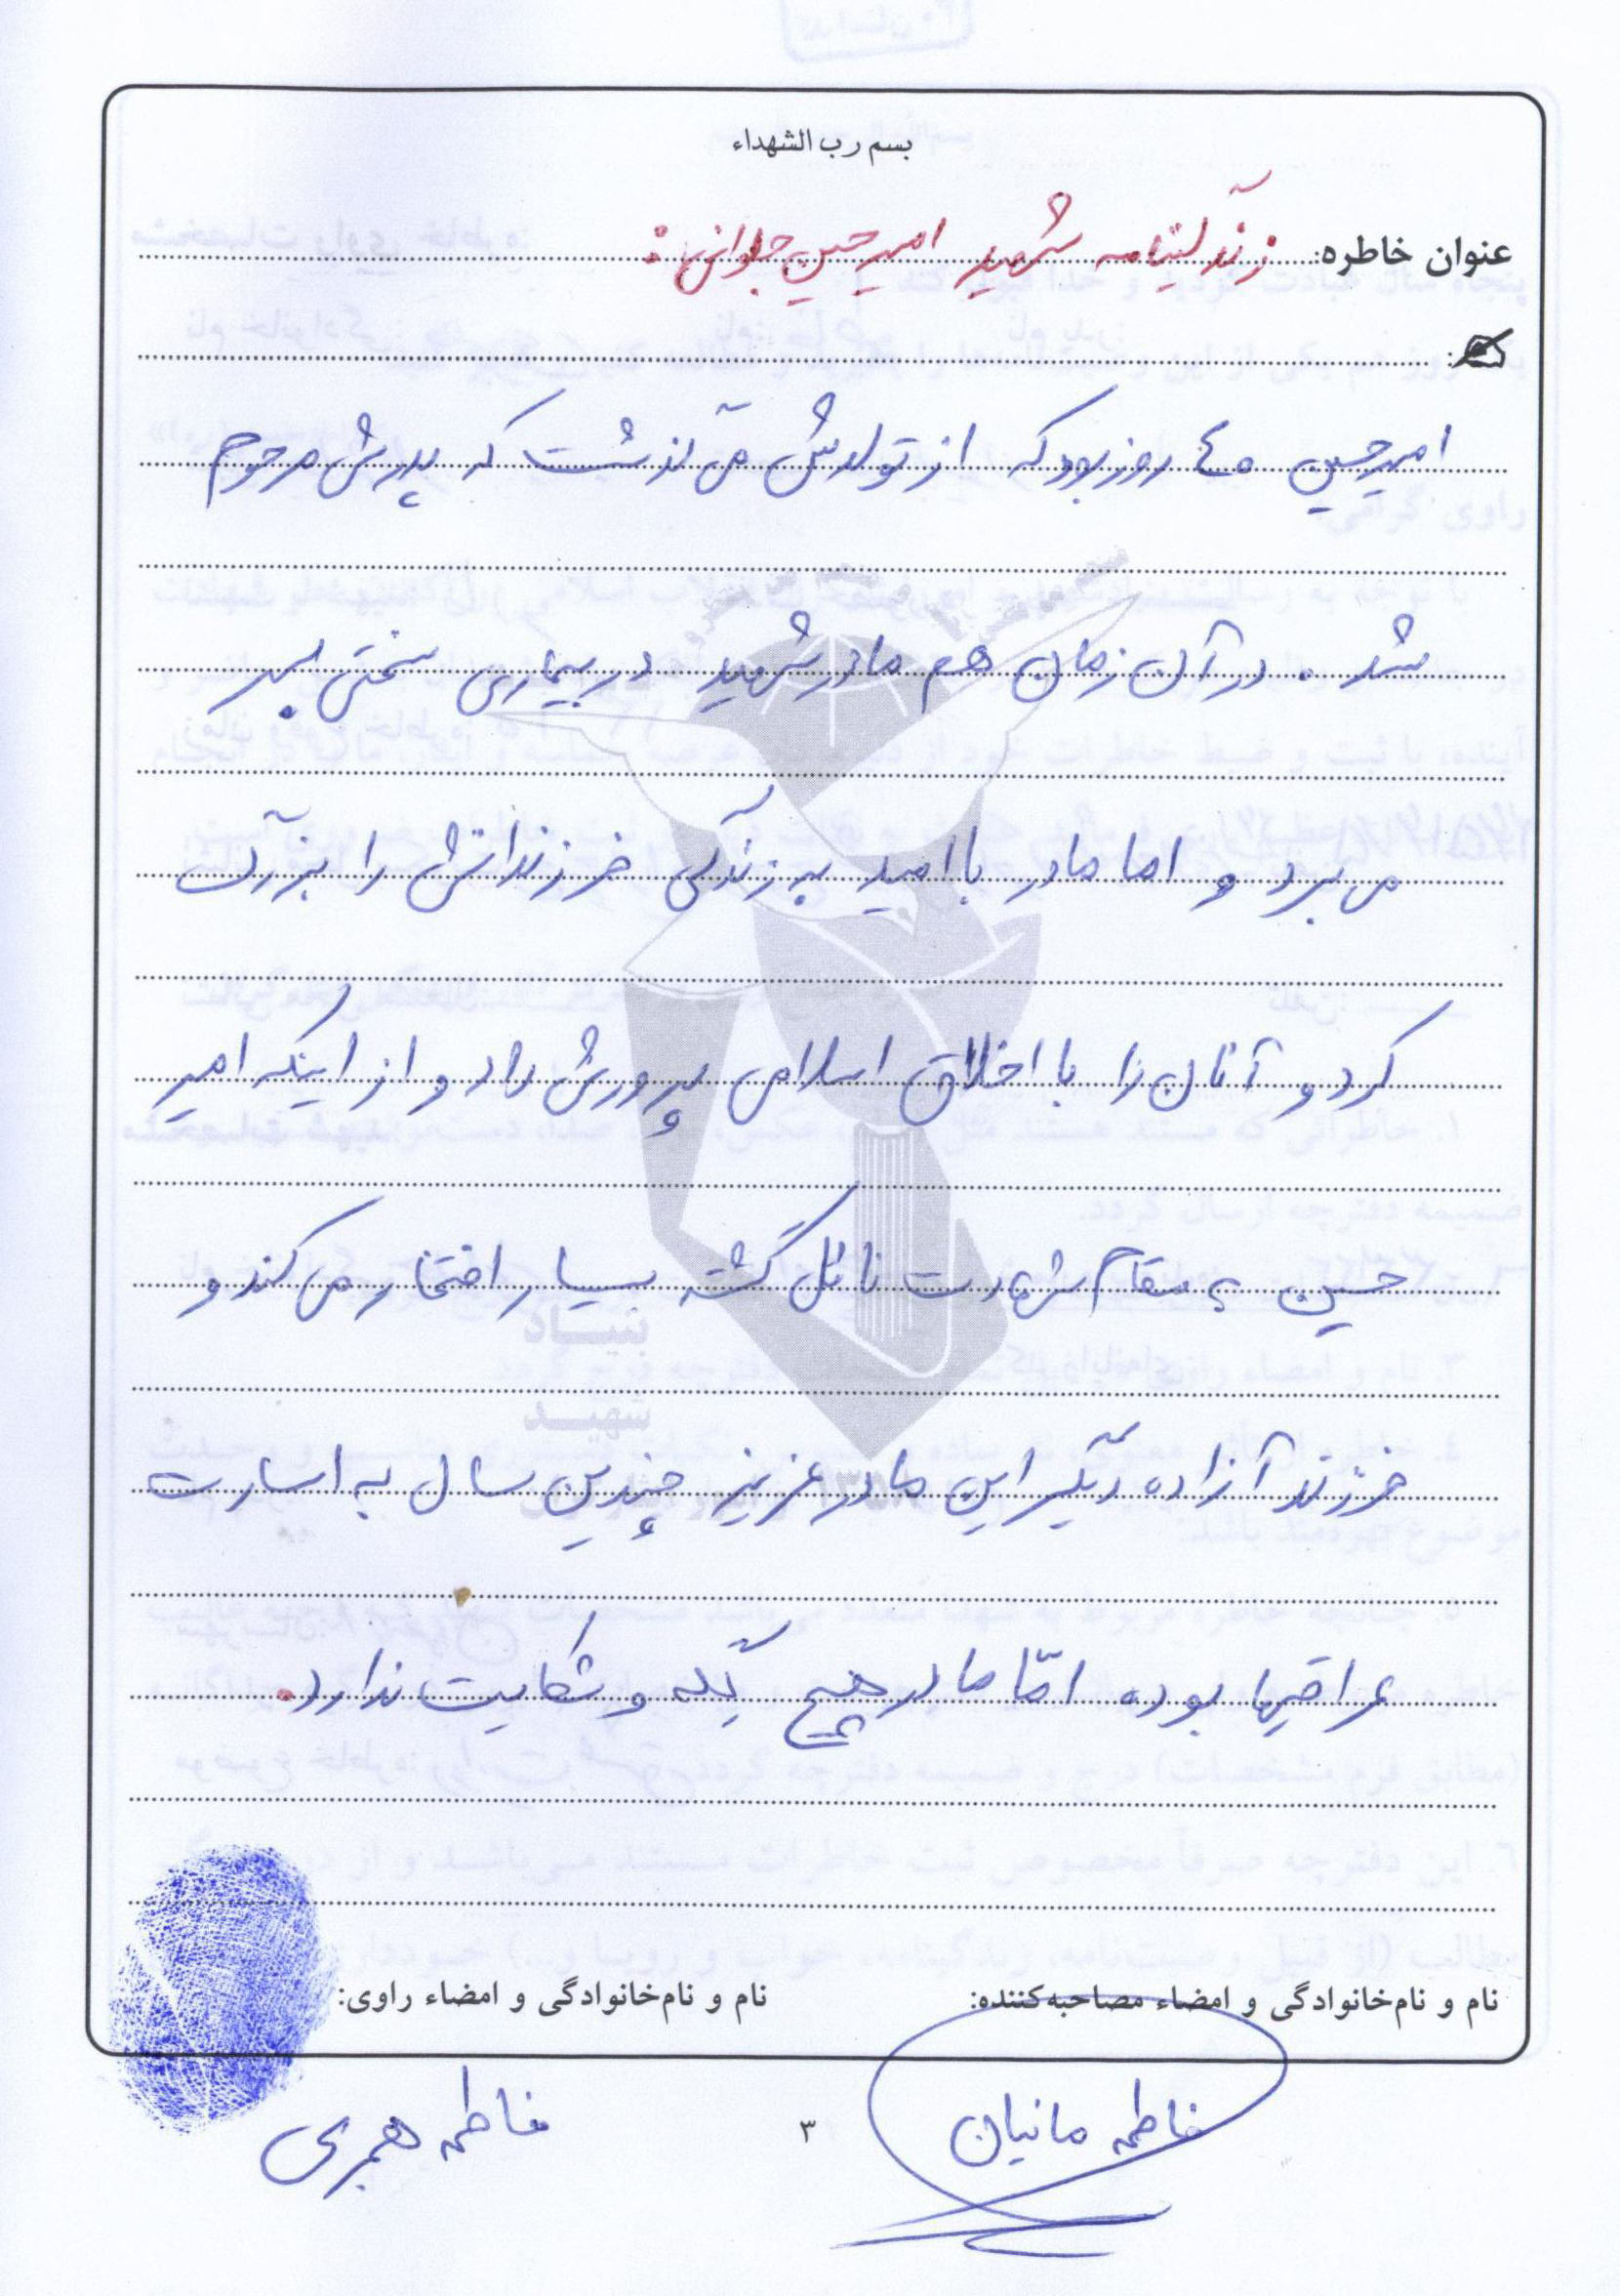 بسم رب الشهداء
عنوان خاطره: زندگینامه شهید امیرحسین جلوانی:
امیرحسین ٤٠ روز بود که از تولدش می گذشت که پدرش مرحوم
شد. در آن زمان هم مادر شهید در بیماری سختی بسر
می برد و اما مادر با امید به زندگی فرزندانش را بزرگ
کرد و آنان را با اخلاق اسلامی پرورش داد و از اینکه امیر
حسین به مقام شهادت نائل گشته بسیار افتخار می کند و
فرزند آزاده دیگر این مادر عزیز چندین سال به اسارت
عراقیها بوده امّا مادر هیچ گله و شکایت ندارد.
بنیاد
شهید
نام و نام‌خانوادگی و امضاء مصاحبه‌کننده:
نام و نام‌خانوادگی و امضاء راوی:
فاطمه مانیان
٣
فاطمه